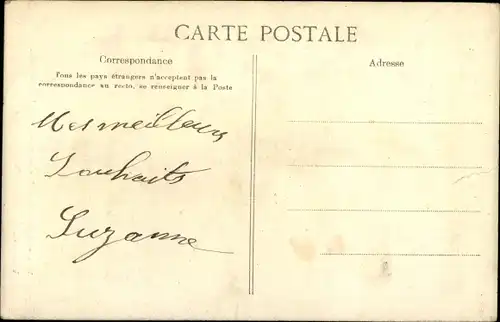 CARTE POSTALE
Correspondance
Tous les pays étrangers n'acceptent pas la
correspondance au recto, se renseigner à la Poste
Adresse
Mes meilleurs
Souhaits
Suzanne